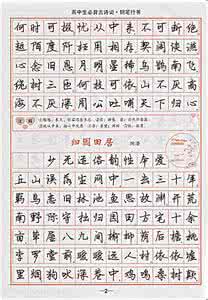 高中生必背古诗词·钢笔行书
何时可掇忧从中来不可断绝
越陌度阡枉用相存契阔谈
心念旧恩月明星稀乌鹊南飞
绕树三匝何枝可依山不厌高
海不厌深周公吐哺天下归心
归园田居
少无适俗韵性本爱
丘山误落尘网中一去三十年
羁鸟恋旧林池鱼思故渊开荒
南野际守拙归园田方宅十余
亩草屋八九间榆柳荫后檐桃
李罗堂前暧暧远人村依依墟
里烟狗吠深巷中鸡鸣桑树颠
2